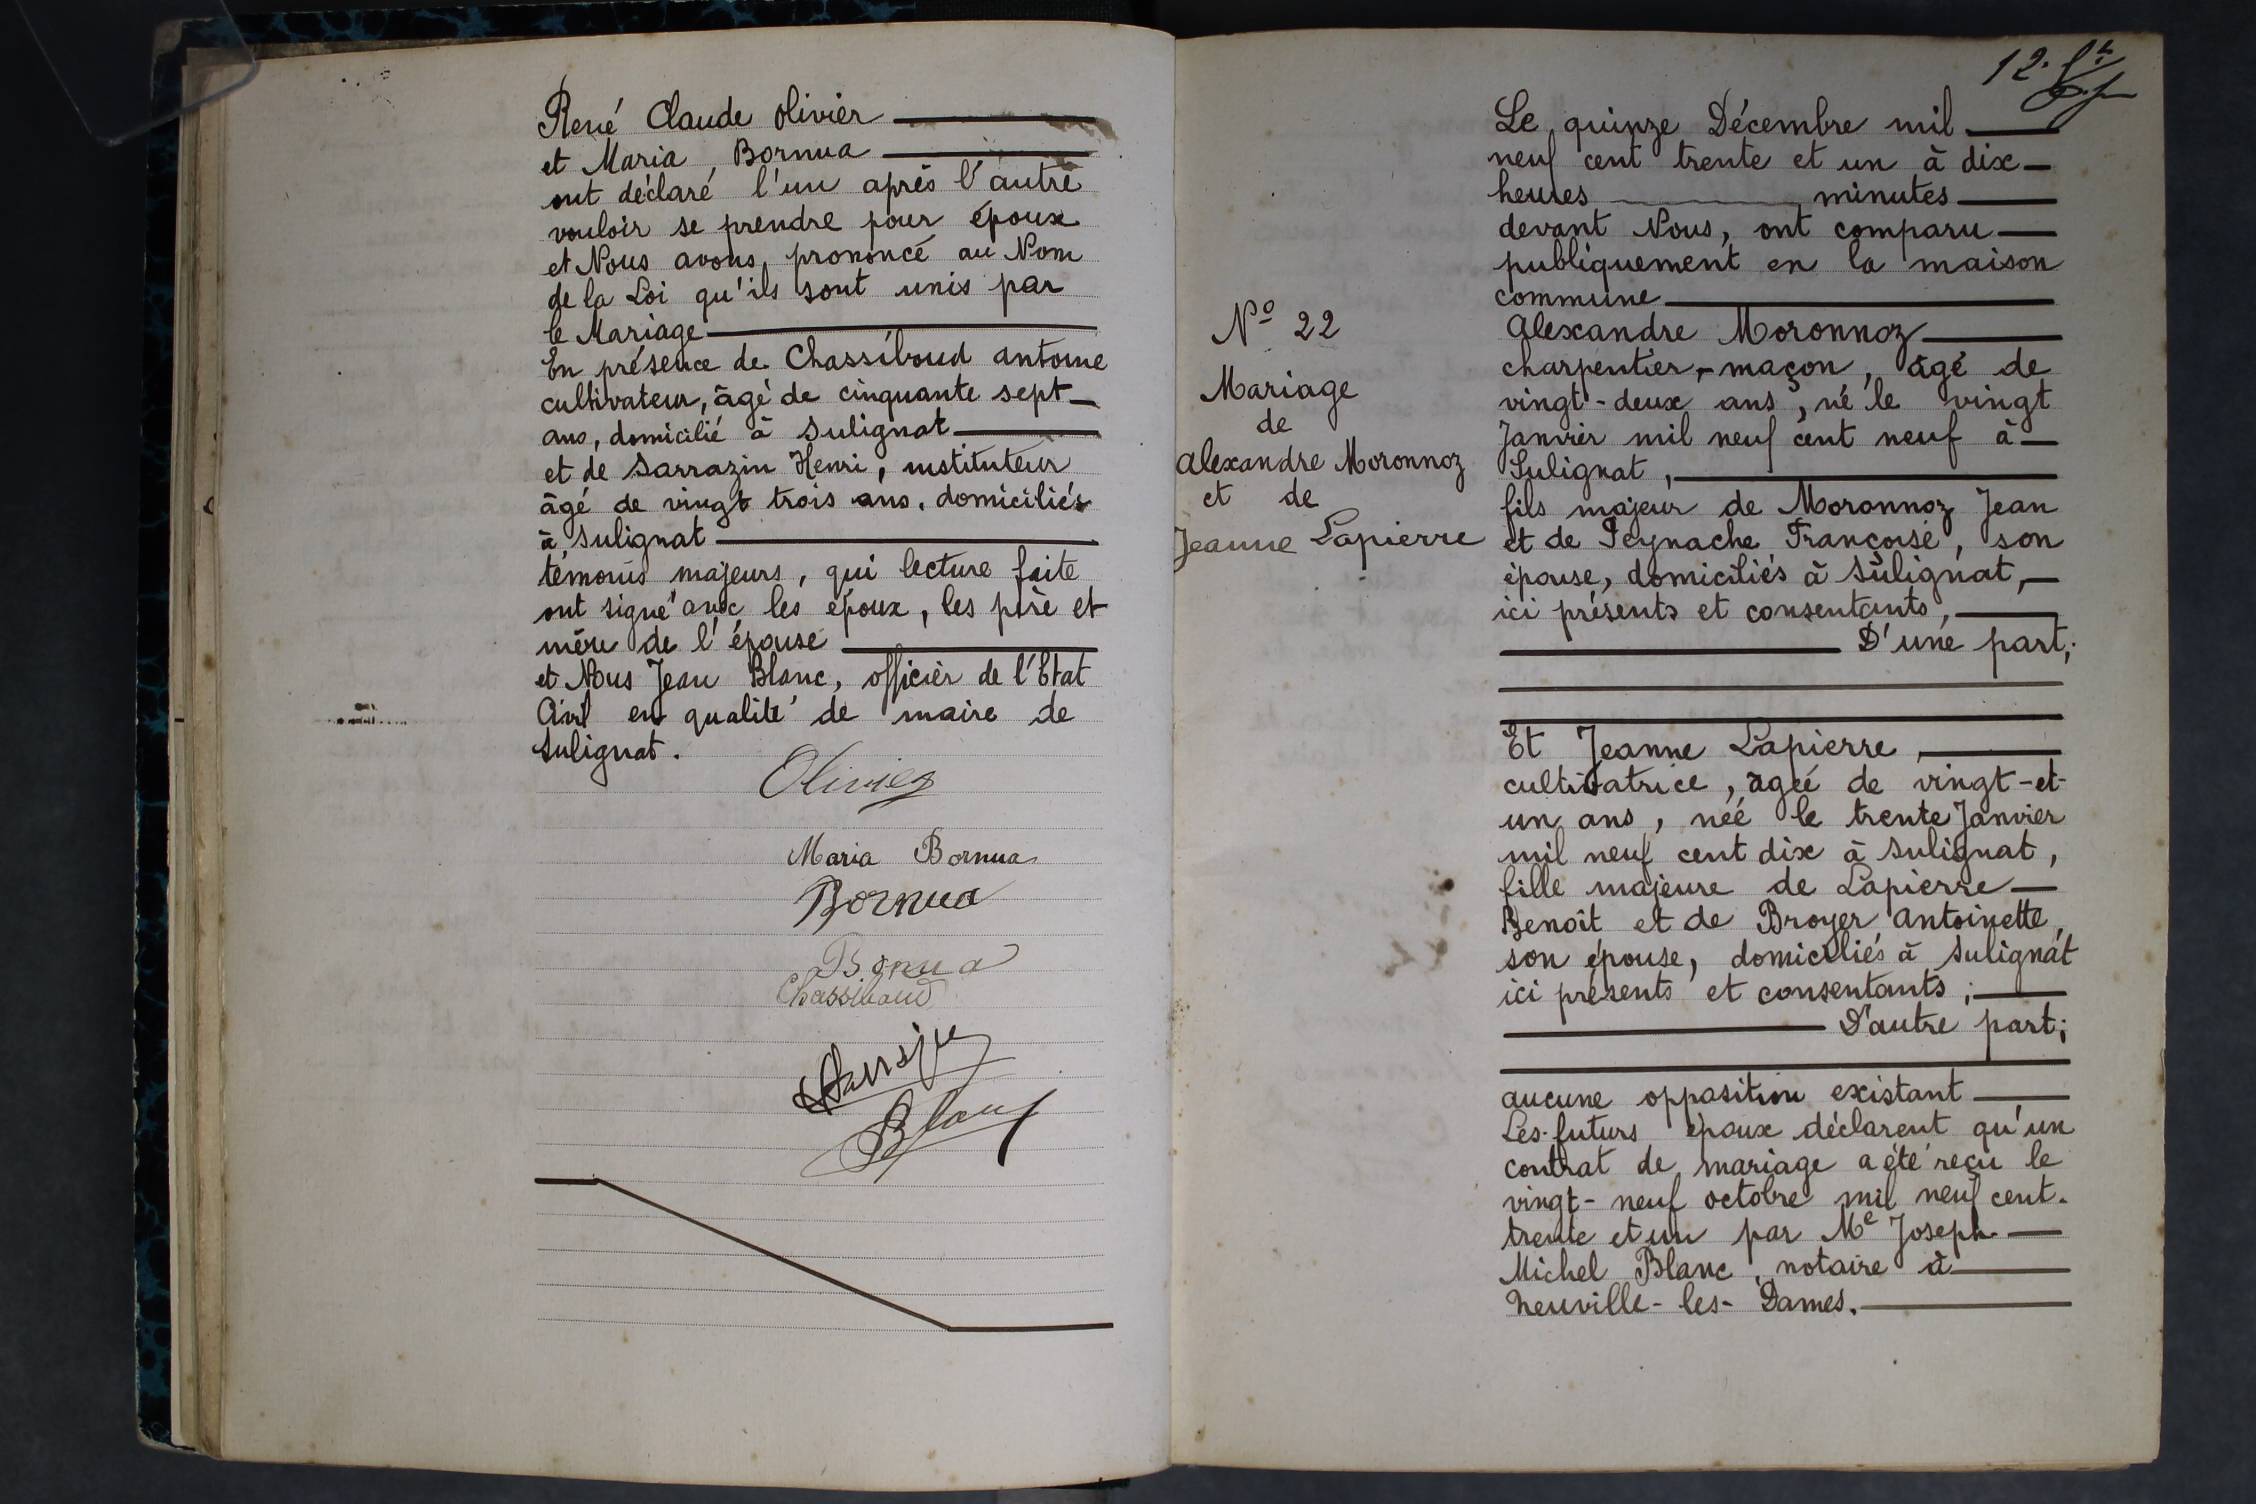 René Claude Olivier
et Maria Bornua
ont déclaré l'un après l'autre
vouloir se prendre pour époux
et Nous avons prononcé au Nom
de la Loi qu'ils sont unis par
le Mariage
En présence de Chassiboud antoine
cultivateur, âgé de cinquante sept
ans, domicilié à Sulignat
et de Sarrazin Henri, instituteur
âgé de vingt trois ans, domiciliés
à Sulignat
témoins majeurs, qui lecture faite
ont signé avec les époux, les père et
mère de l'épouse
et Nous Jean Blanc, officier de l'Etat
Civil en qualité de maire de
Sulignat.
Olivier
Maria Bornua
Bornua
Bornua
Chassiboud
Blanc
12.
Le quinze Décembre mil
neuf cent trente et un à dix
heures minutes
devant Nous, ont comparu
publiquement en la maison
commune
N° 22
Mariage
de
Alexandre Moronnoz
et de
Jeanne Lapierre
Alexandre Moronnoz
charpentier-maçon, âgé de
vingt-deux ans, né le vingt
Janvier mil neuf cent neuf à
Sulignat,
fils majeur de Moronnoz Jean
et de Peynache Françoise, son
épouse, domiciliés à Sulignat,
ici présents et consentants,
D'une part;
Et Jeanne Lapierre,
cultivatrice, âgée de vingt-et-
un ans, née le trente Janvier
mil neuf cent dix à Sulignat,
fille majeure de Lapierre
Benoît et de Broyer Antoinette,
son épouse, domiciliés à Sulignat
ici présents et consentants;
D'autre part;
aucune opposition existant
Les futurs époux déclarent qu'un
contrat de mariage a été reçu le
vingt-neuf octobre mil neuf cent
trente et un par Me Joseph
Michel Blanc, notaire à
Neuville-les-Dames.